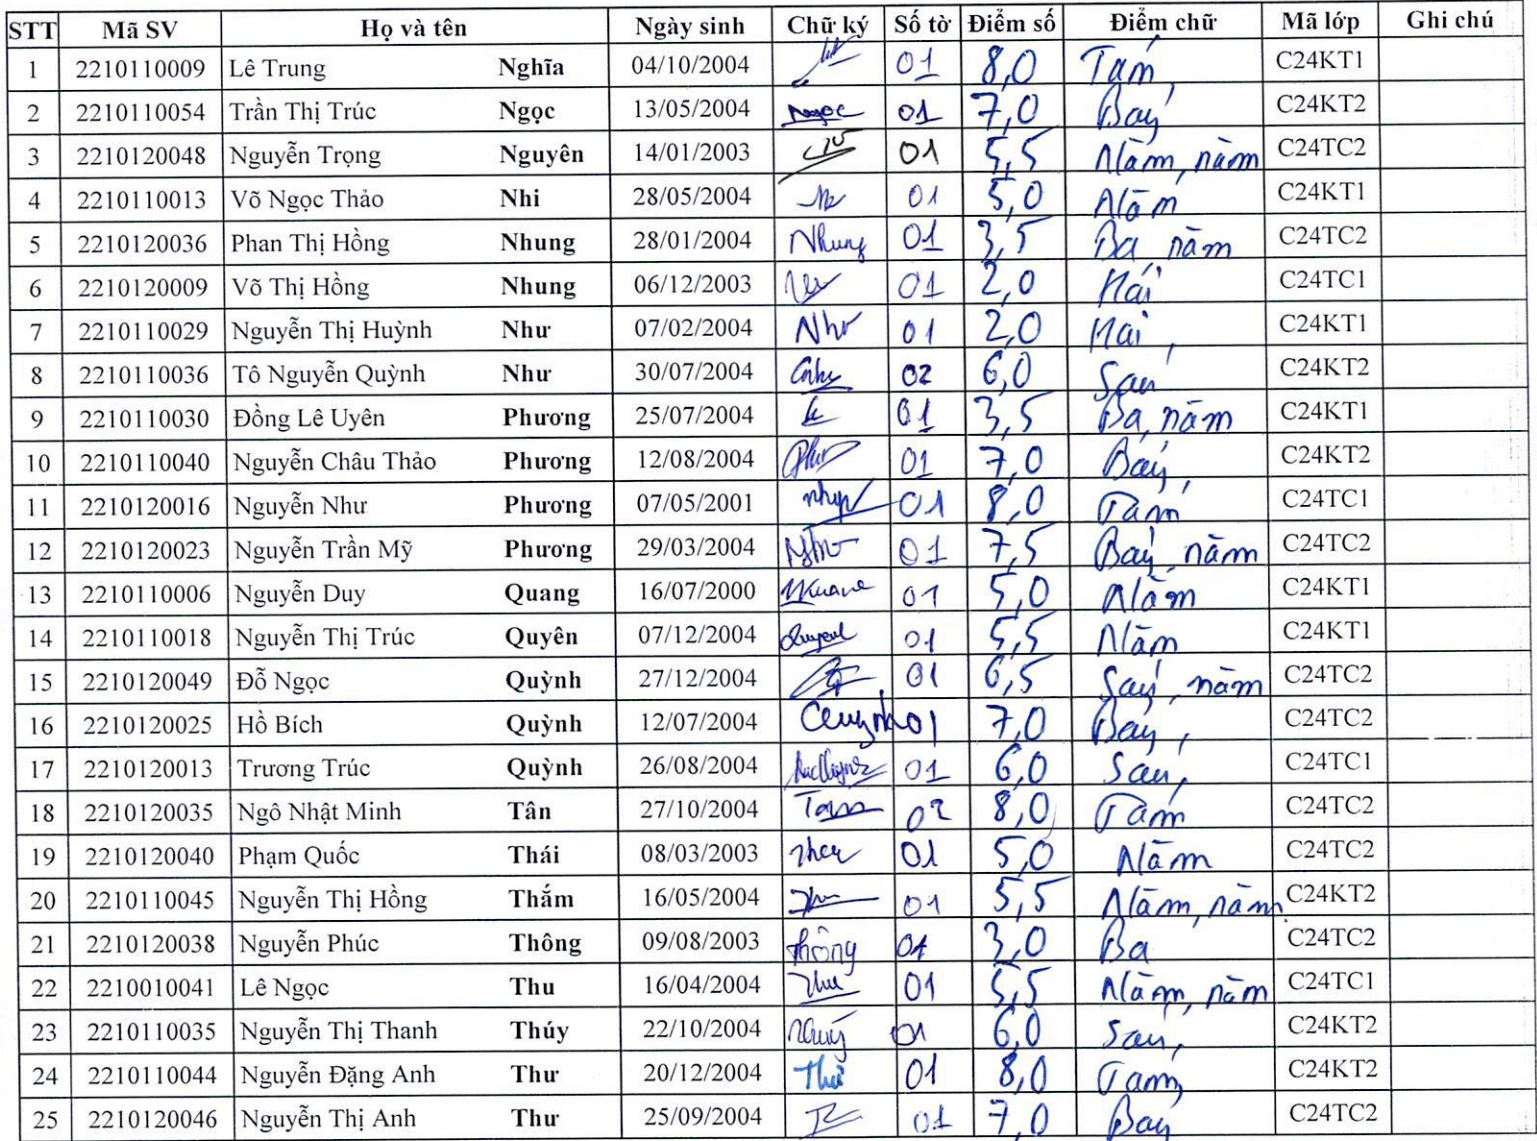 STT Mã SV Họ và tên Ngày sinh Chữ ký Số tờ Điểm số Điểm chữ Mã lớp Ghi chú
1 2210110009 Lê Trung Nghĩa 04/10/2004 01 8,0 Tám C24KT1
2 2210110054 Trần Thị Trúc Ngọc 13/05/2004 Ngọc 01 7,0 Bảy C24KT2
3 2210120048 Nguyễn Trọng Nguyên 14/01/2003 01 5,5 Năm, năm C24TC2
4 2210110013 Võ Ngọc Thảo Nhi 28/05/2004 01 5,0 Năm C24KT1
5 2210120036 Phan Thị Hồng Nhung 28/01/2004 Nhung 01 3,5 Ba, năm C24TC2
6 2210120009 Võ Thị Hồng Nhung 06/12/2003 01 2,0 Hai C24TC1
7 2210110029 Nguyễn Thị Huỳnh Như 07/02/2004 Như 01 2,0 Hai C24KT1
8 2210110036 Tô Nguyễn Quỳnh Như 30/07/2004 02 6,0 Sáu C24KT2
9 2210110030 Đồng Lê Uyên Phương 25/07/2004 01 3,5 Ba, năm C24KT1
10 2210110040 Nguyễn Châu Thảo Phương 12/08/2004 01 7,0 Bảy C24KT2
11 2210120016 Nguyễn Như Phương 07/05/2001 01 8,0 Tám C24TC1
12 2210120023 Nguyễn Trần Mỹ Phương 29/03/2004 01 7,5 Bảy, năm C24TC2
13 2210110006 Nguyễn Duy Quang 16/07/2000 01 5,0 Năm C24KT1
14 2210110018 Nguyễn Thị Trúc Quyên 07/12/2004 01 5,5 Năm C24KT1
15 2210120049 Đỗ Ngọc Quỳnh 27/12/2004 01 6,5 Sáu, năm C24TC2
16 2210120025 Hồ Bích Quỳnh 12/07/2004 01 7,0 Bảy C24TC2
17 2210120013 Trương Trúc Quỳnh 26/08/2004 01 6,0 Sáu C24TC1
18 2210120035 Ngô Nhật Minh Tân 27/10/2004 02 8,0 Tám C24TC2
19 2210120040 Phạm Quốc Thái 08/03/2003 01 5,0 Năm C24TC2
20 2210110045 Nguyễn Thị Hồng Thắm 16/05/2004 01 5,5 Năm, năm C24KT2
21 2210120038 Nguyễn Phúc Thông 09/08/2003 thông 01 3,0 Ba C24TC2
22 2210010041 Lê Ngọc Thu 16/04/2004 Thu 01 5,5 Năm, năm C24TC1
23 2210110035 Nguyễn Thị Thanh Thúy 22/10/2004 01 6,0 Sáu C24KT2
24 2210110044 Nguyễn Đặng Anh Thư 20/12/2004 Thư 01 8,0 Tám C24KT2
25 2210120046 Nguyễn Thị Anh Thư 25/09/2004 01 7,0 Bảy C24TC2